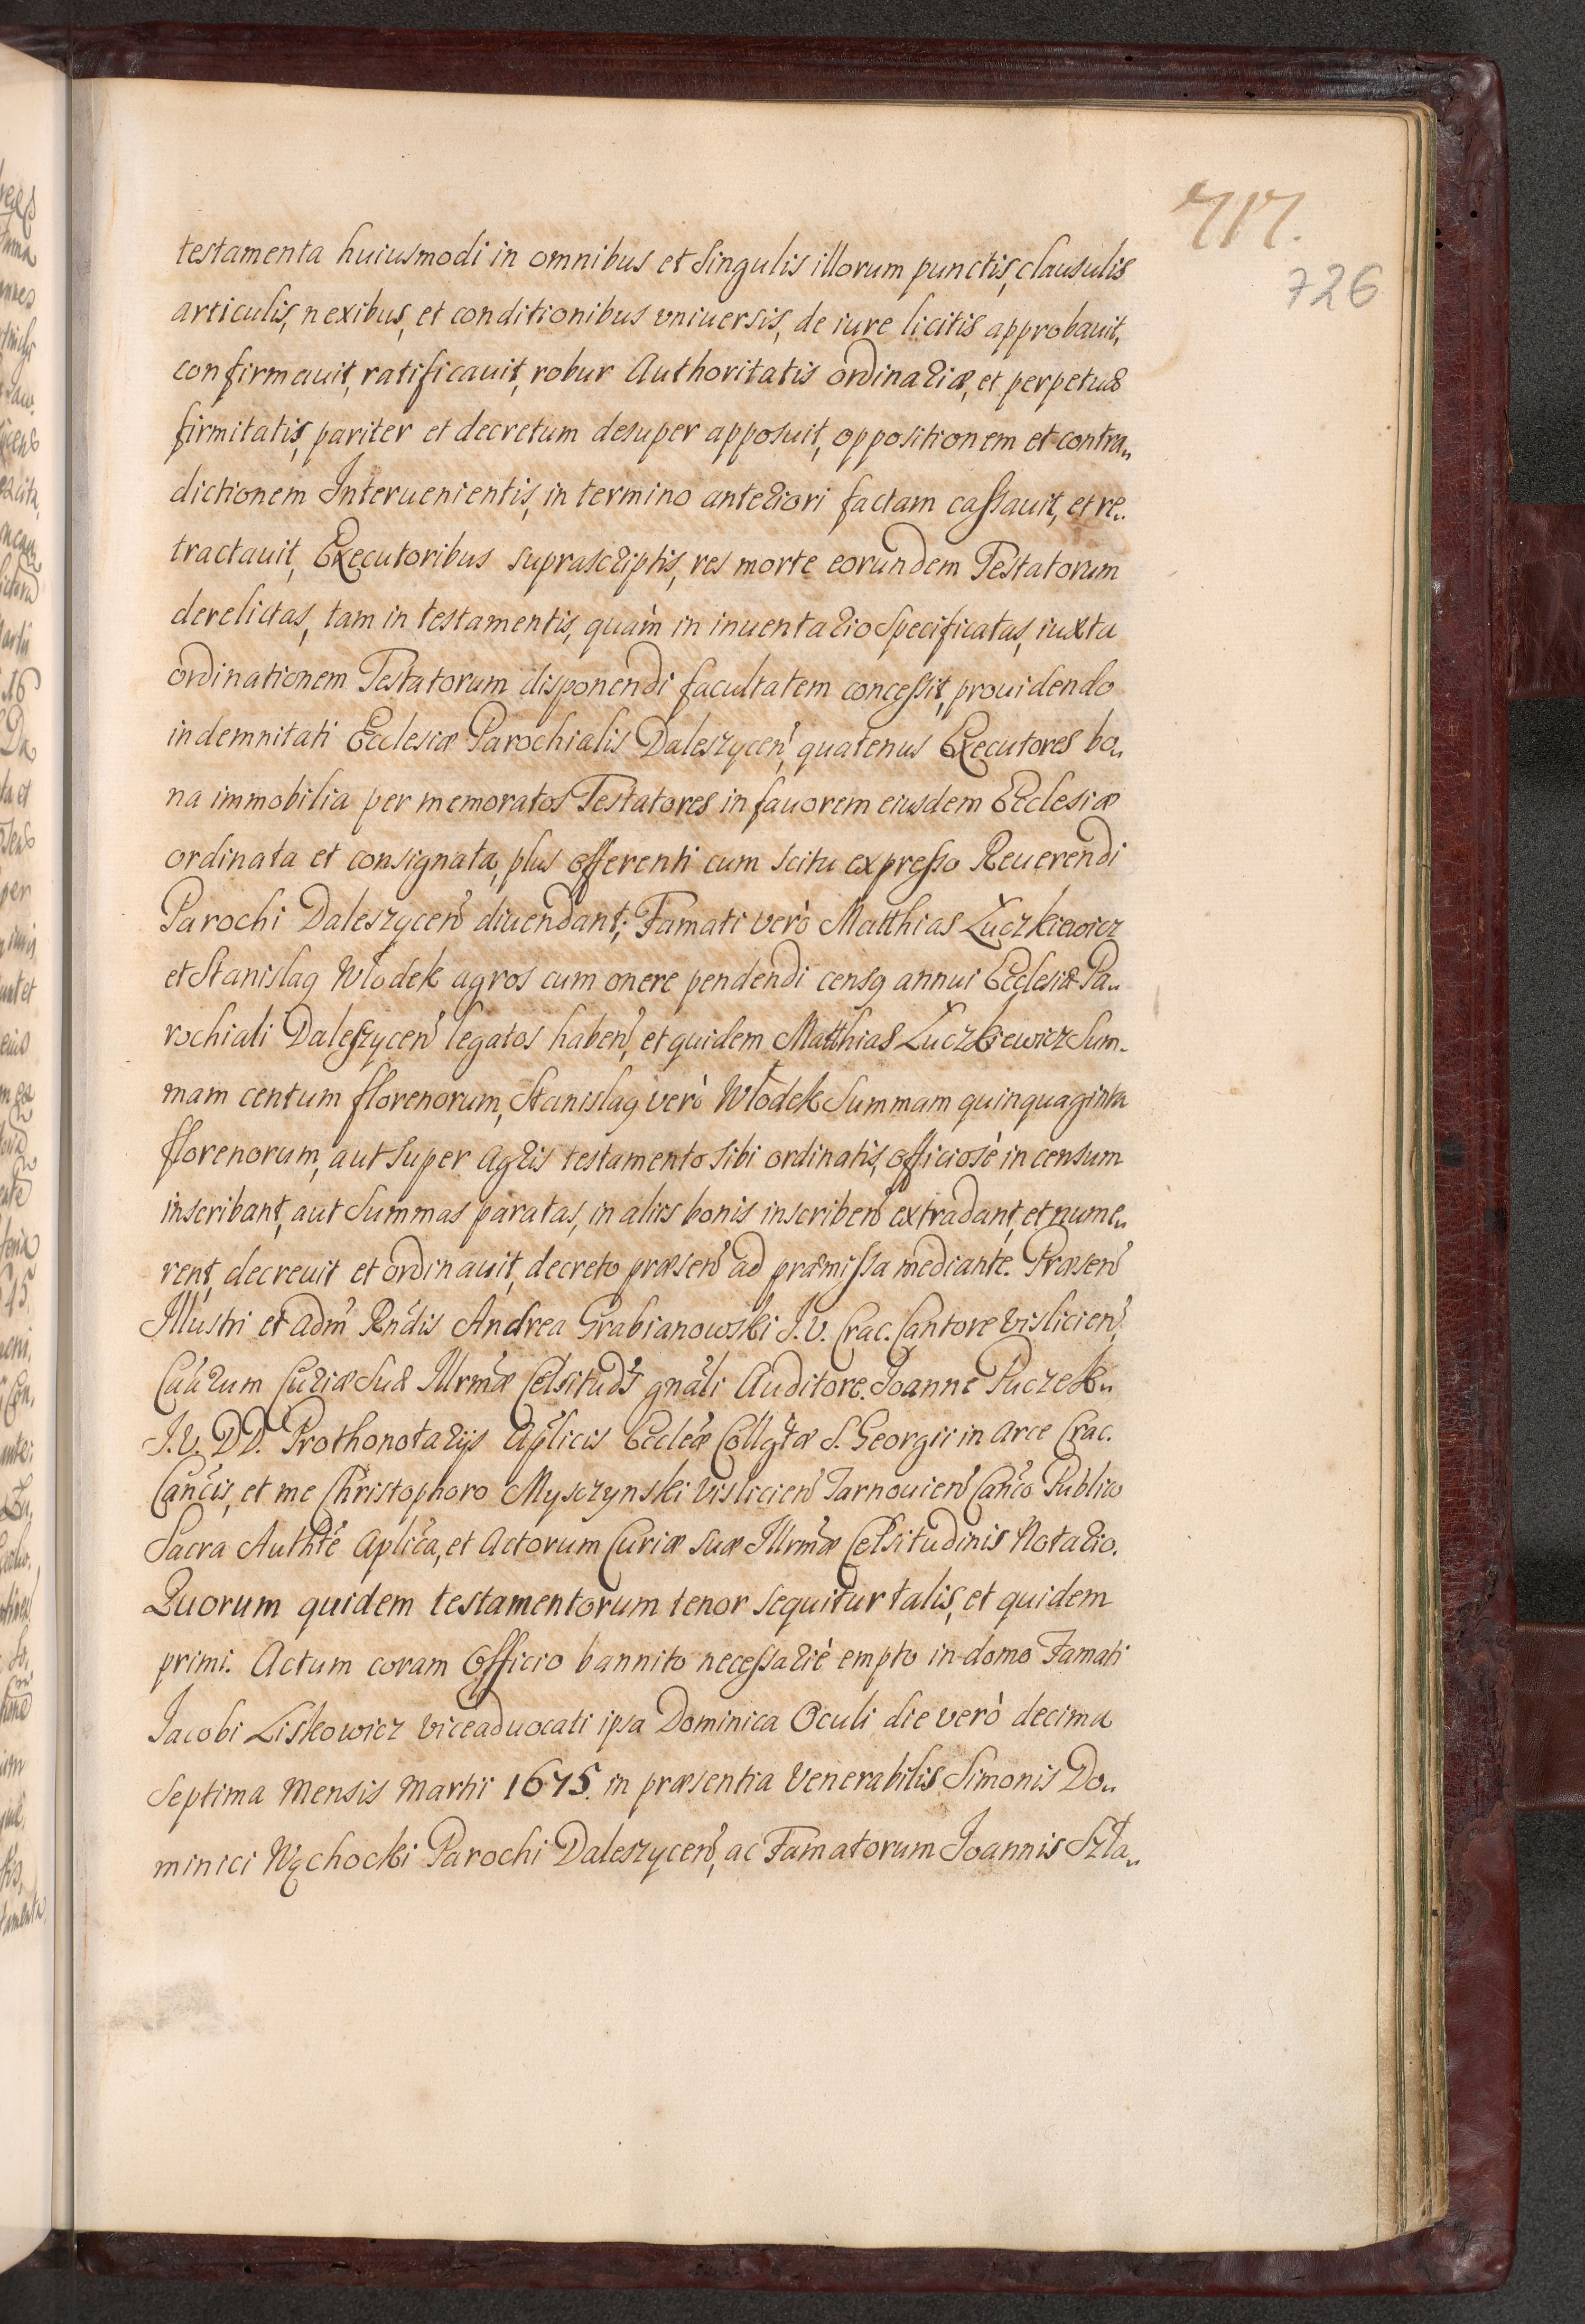 717.
726
testamenta huiusmodi in omnibus et singulis illorum punctis, clausulis
articulis, nexibus, et conditionibus vniuersis, de iure licitis approbauit,
confirmauit, ratificauit, robur Authoritatis ordinariæ, et perpetuæ
firmitatis, pariter et decretum desuper apposuit, oppositionem et contra„
dictionem Interuenientis, in termino anteriori factam cassauit, et re„
tractauit, Executoribus suprascriptis, res morte eorundem Testatorum
derelictas, tam in testamentis, quàm in inuentario specificatas, iuxta
ordinationem Testatorum disponendi facultatem concessit, prouidendo
indemnitati Ecclesiæ Parochialis Daleszyceñ, quatenus Executores bo„
na immobilia per memoratos Testatores in fauorem eiusdem Ecclesiæ
ordinata et consignata, plus offerenti cum scitu expresso Reuerendi
Parochi Daleszyceñ diuendant; Famati verò Matthias Łuczkiewicz
et Stanislaq Włodek agros cum onere pendendi censq annui Ecclesiæ Pa„
rochiali Daleszyceñ legatos habeñ, et quidem Matthias Łuczkiewicz Sum„
mam centum florenorum, Stanislaq verò Włodek Summam quinquaginta
florenorum, aut super agris testamento sibi ordinatis, officiosè in censum
inscribant, aut Summas paratas, in aliis bonis inscribeñ extradant, et nume„
rent, decreuit et ordinauit, decreto præseñ ad præmissa mediante. Præseñ
Illustri et adm̃ Rñdis Andrea Grabianowski I.V. Crac. Cantore Vislicieñ,
Caũrum Curiæ Suæ Illrmæ Celsitudĩs gnãli Auditore. Joanne Puczek„
I.V. DD. Prothonotarijs Aplicis Ecclẽæ Collgtæ S. Georgii in Arce Crac.
Cañcis, et me Christophoro Mysczynski Vislicieñ Tarnouieñ Cañco Publico
Sacra Authtẽ Aplica, et Actorum Curiæ suæ Illrmæ Celsitudinis Notario.
Quorum quidem testamentorum tenor sequitur talis, et quidem
primi. Actum coram Officio bannito necessariè empto in domo Famati
Jacobi Liskowicz viceaduocati ipsa Dominica Oculi die verò decima
septima Mensis Martii 1675. in præsentia Venerabilis Simonis Do„
minici Wąchocki Parochi Daleszyceñ, ac Famatorum Joannis Szla„